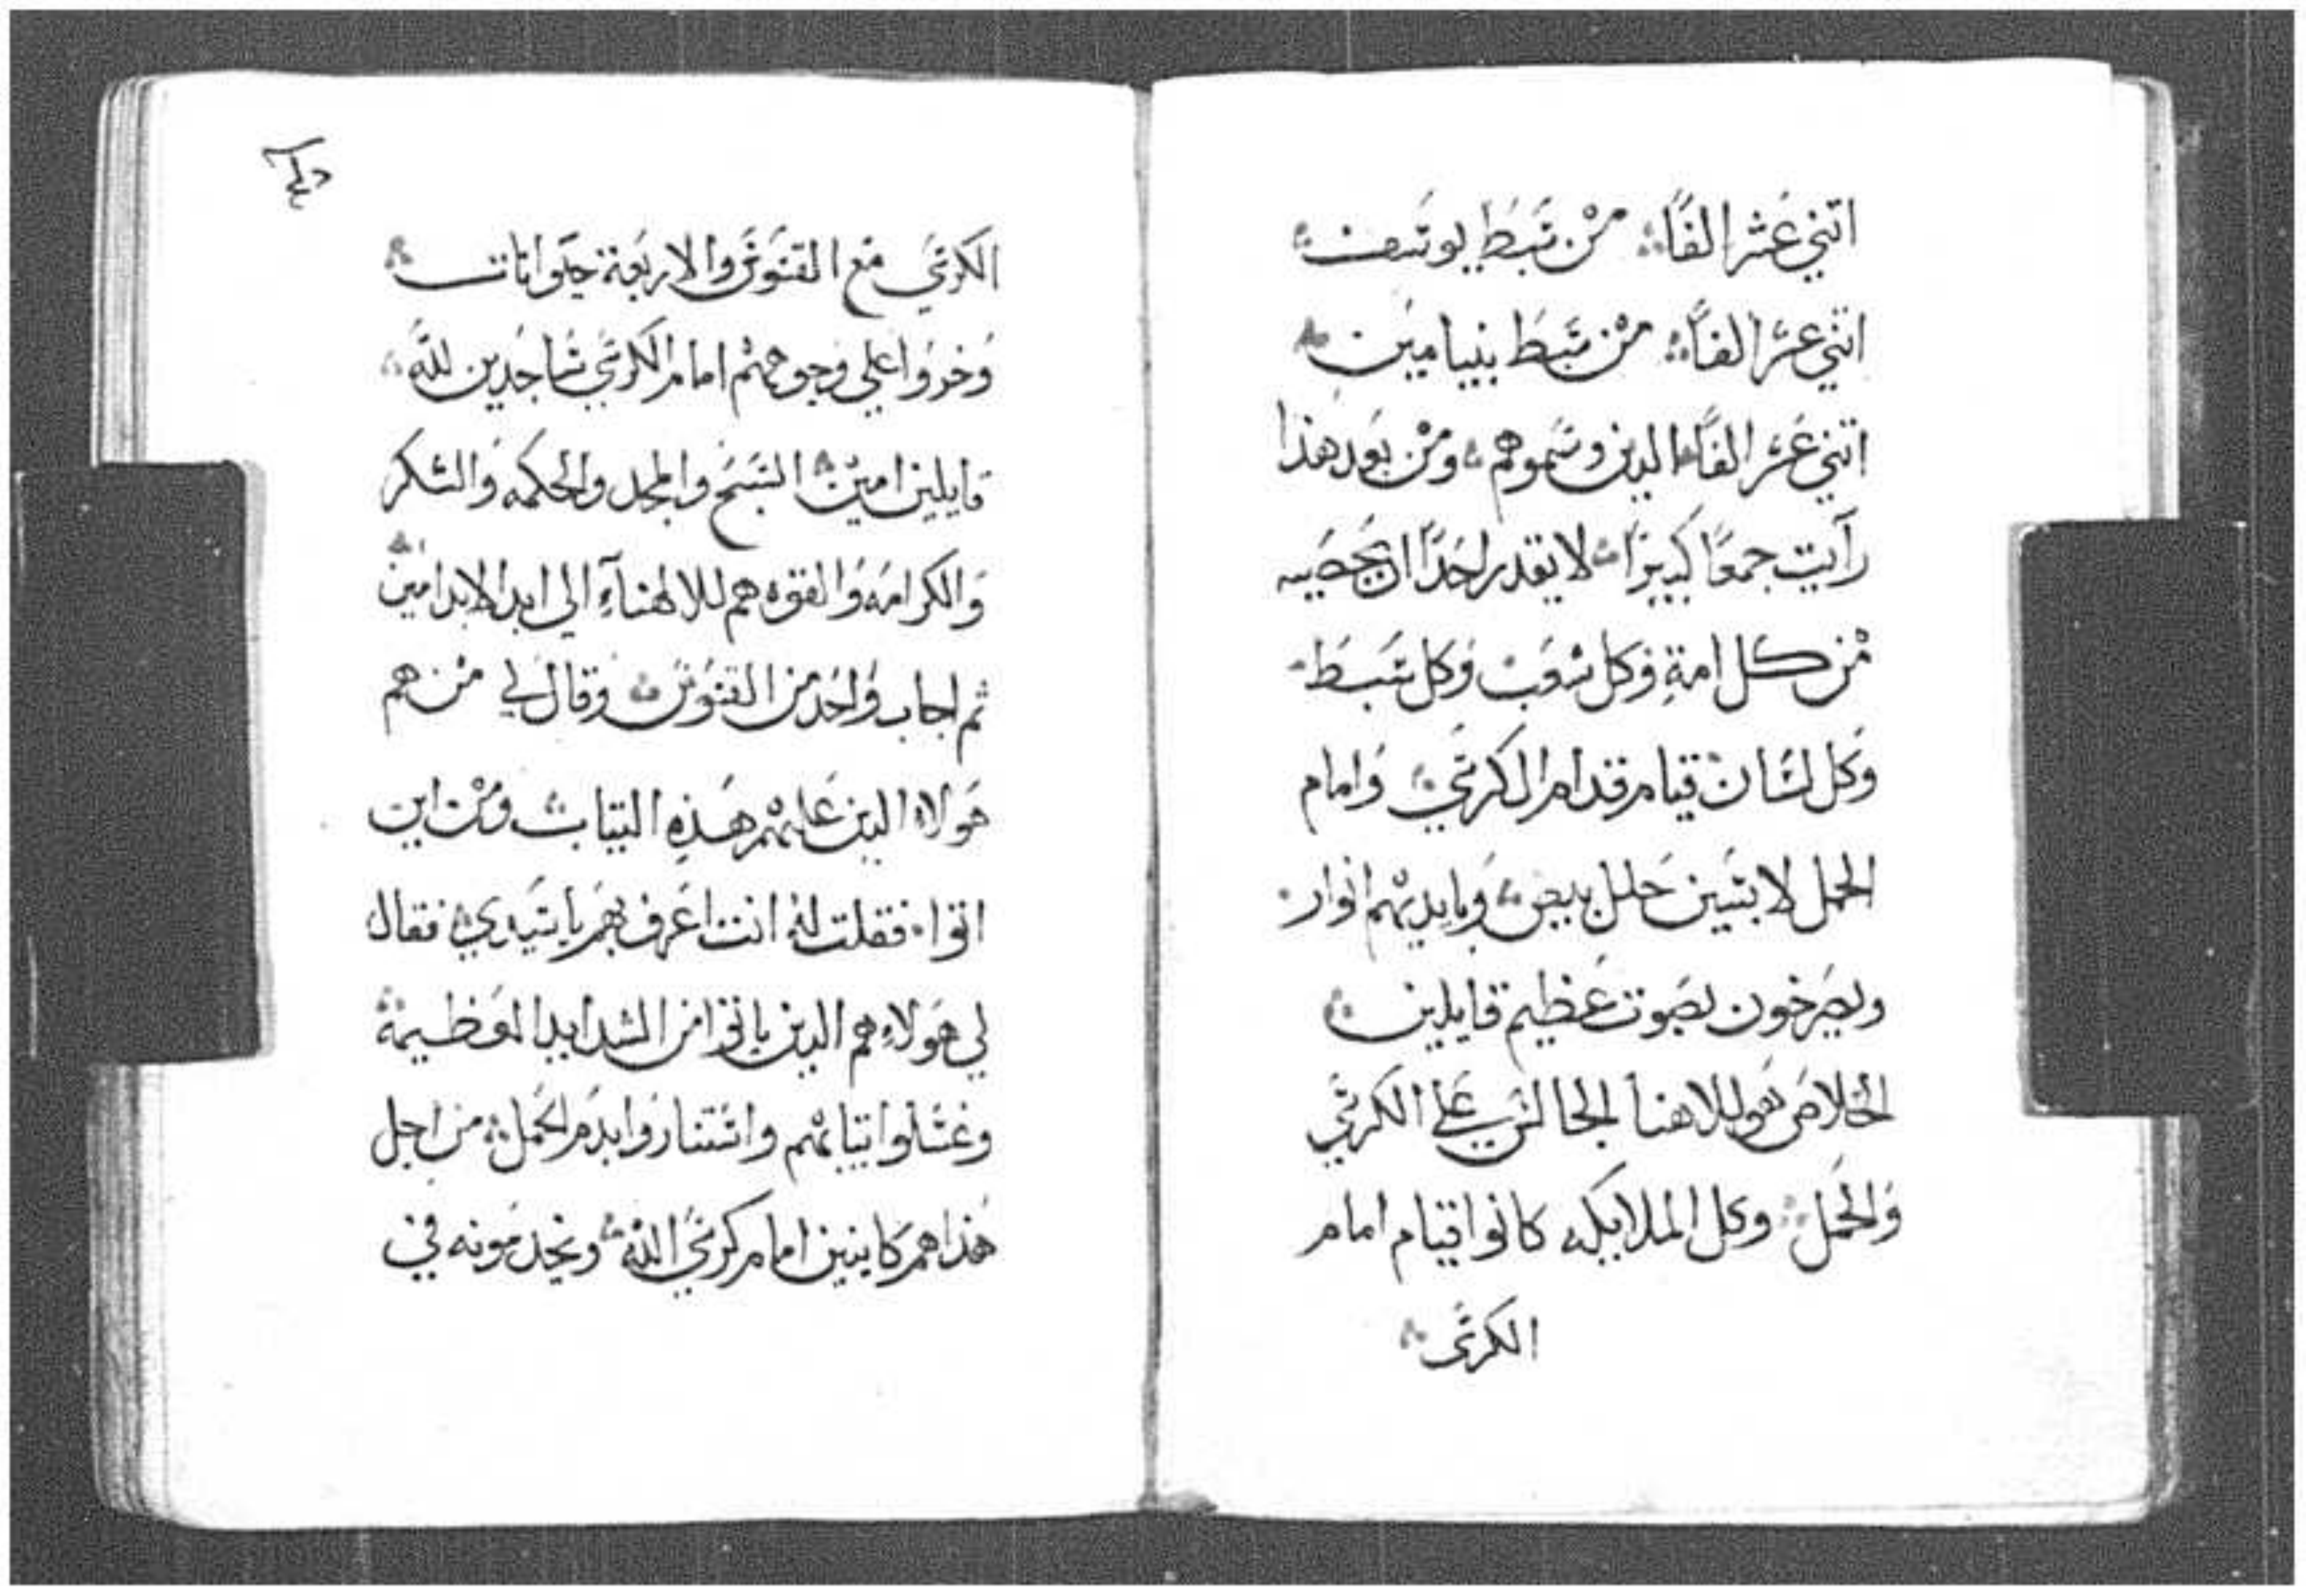 اتني عشر الفًا من سبط يوسف
اتني عشر الفًا من سبط بنيامين
اتني عشر الفًا الدين وسموهم ومن بعد هذا
رآيت جمعًا كبيرًا لا يقدر احدًا ان يحصيه
من كل امةٍ وكل شعب وكل سبط
وكل لسان قيام قدام الكرسي وامام
الحمل لابسين حلل بيض وبايديهم انوار
ويصرخون بصوت عظيم قايلين
الخلاص هو للاهنا الجالس علي الكرسي
والحمل وكل الملايكه كانوا قيام امام
الكرسى
الكرسي مع القسوس والاربعة حيوانات
وخروا علي وجوههم امام الكرسي ساجدين لله
قايلين امين السبح والمجد والحكمه والشكر
والكرامه والقوه هم لالاهنا الي ابد الابد امين
ثم اجاب واحد من القسوس وقال لي من هم
هولاء الدين عليهم هذه التياب ومن اين
اتوا فقلت له انت اعرف بهم يا سيدي فقال
لي هولاء هم الدين ياتوا من الشدايد العظيمة
وغسلوا تيابهم واستناروا بدم الحمل من اجل
هذا هم كاينين امام كرسي الله ويخدمونه في